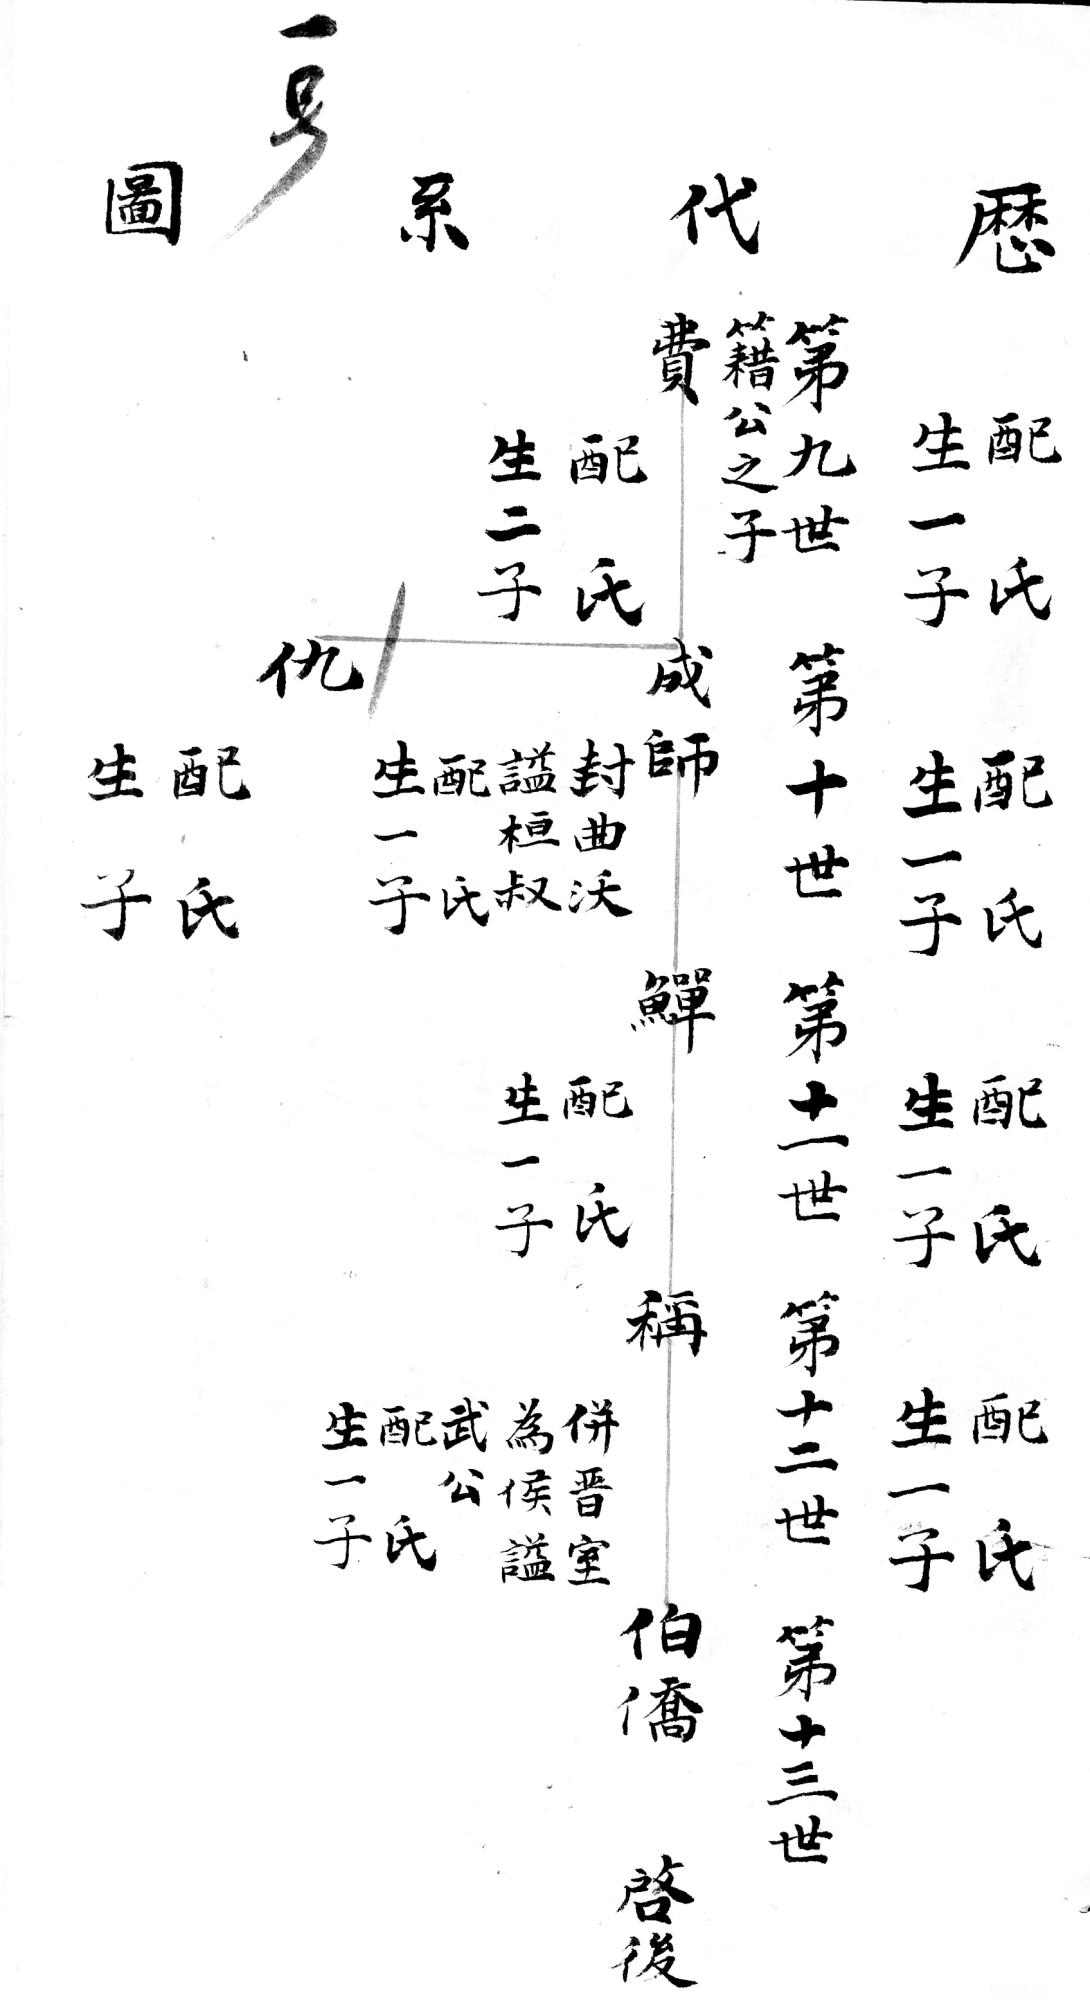 一号
歷代系圖
配氏
生一子
第九世
籍公之子
費
配氏
生二子
配氏
生一子
第十世
成師
封曲沃
謚桓叔
配氏
生一子
仇
配氏
生子
配氏
生一子
第十一世
鱓
配氏
生一子
配氏
生一子
第十二世
稱
併晋室
為侯謚
武公
配氏
生一子
第十三世
伯僑
啓後